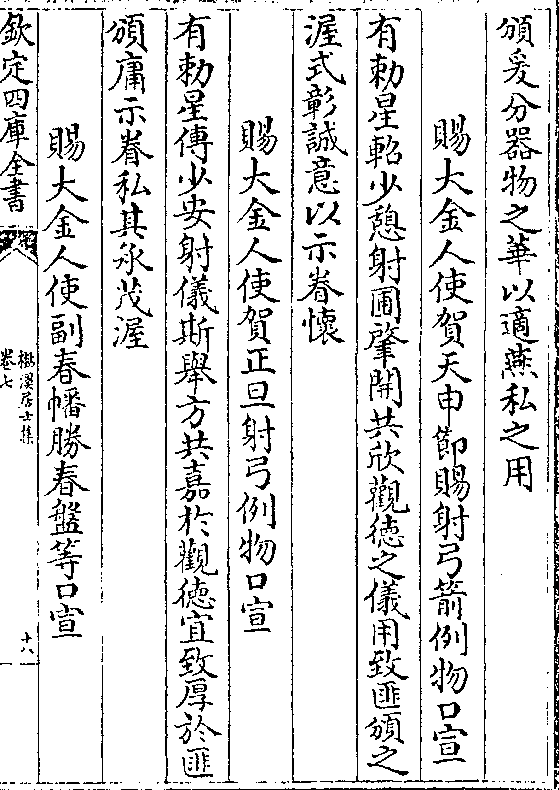 頒爰分器物之華以適燕私之用
賜大金人使賀天申節賜射弓箭例物口宣
有勅星軺少憩射圃肇開共欣觀德之儀用致匪頒之
渥式彰誠意以示眷懷
賜大金人使賀正旦射弓例物口宣
有勅星傳少安射儀斯舉方共嘉於觀德宜致厚於匪
頒庸示眷私其承茂渥
賜大金人使副春幡勝春盤等口宣
欽定四庫全書
楳溪居士集
卷七
十八